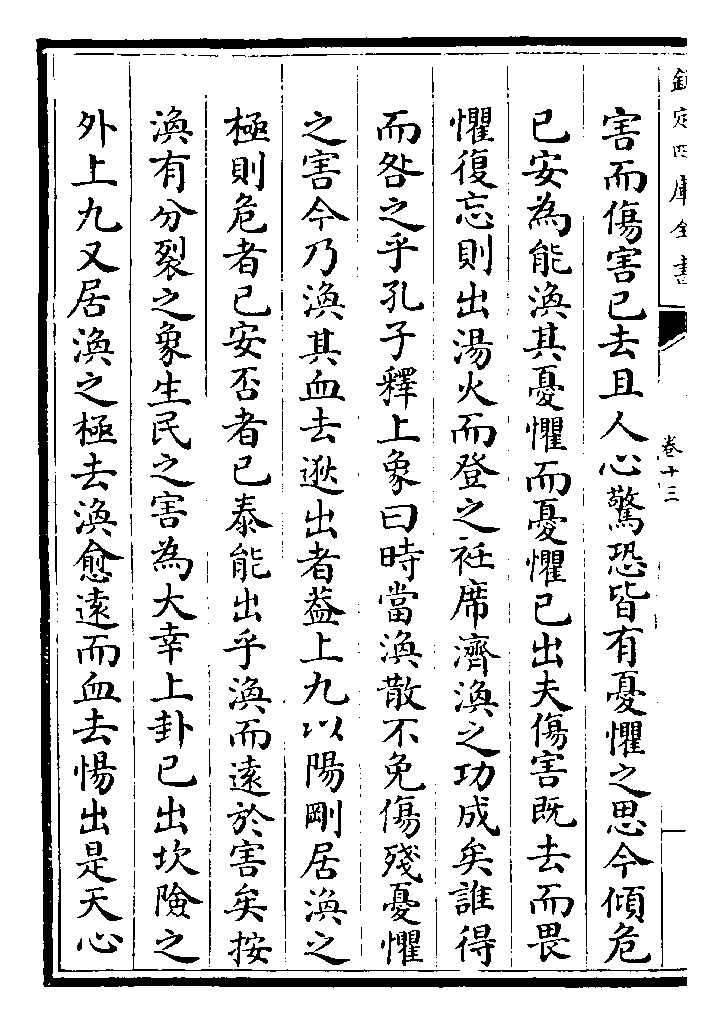 欽定四庫全書
卷十三
害而傷害已去且人心驚恐皆有憂懼之思今傾危
已安為能渙其憂懼而憂懼已出夫傷害既去而畏
懼復忘則出湯火而登之衽席濟渙之功成矣誰得
而咎之乎孔子釋上象曰時當渙散不免傷殘憂懼
之害今乃渙其血去逖出者葢上九以陽剛居渙之
極則危者已安否者已泰能出乎渙而遠於害矣按
渙有分裂之象生民之害為大幸上卦已出坎險之
外上九又居渙之極去渙愈遠而血去惕出是天心